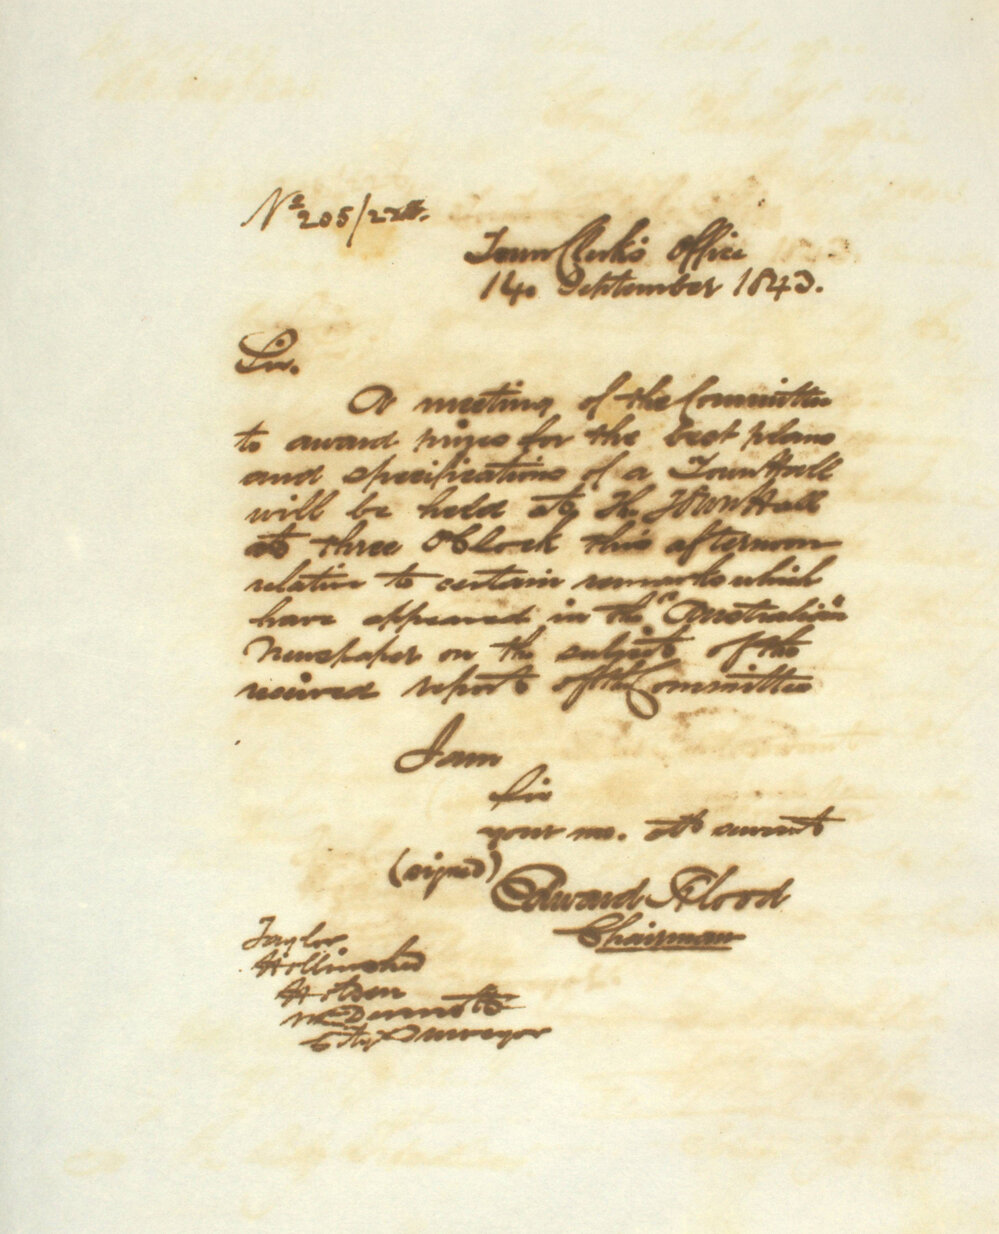 No 205/22tt.
Town Clerk's Office
14. September 1843.
Sir.
A meeting of the Committee
to award prizes for the best plans
and specifications of a Town Hall
will be held at the Town Hall
at three OClock this afternoon
relative to certain remarks which
have appeared in the "Australian"
Newspaper on the subject of the
report of the Committee
I am
Sir
your mo. obt servant
(signed) Edward Flood
Chairman
Taylor
Hollinshed
Hosen
McDermott
City Surveyor